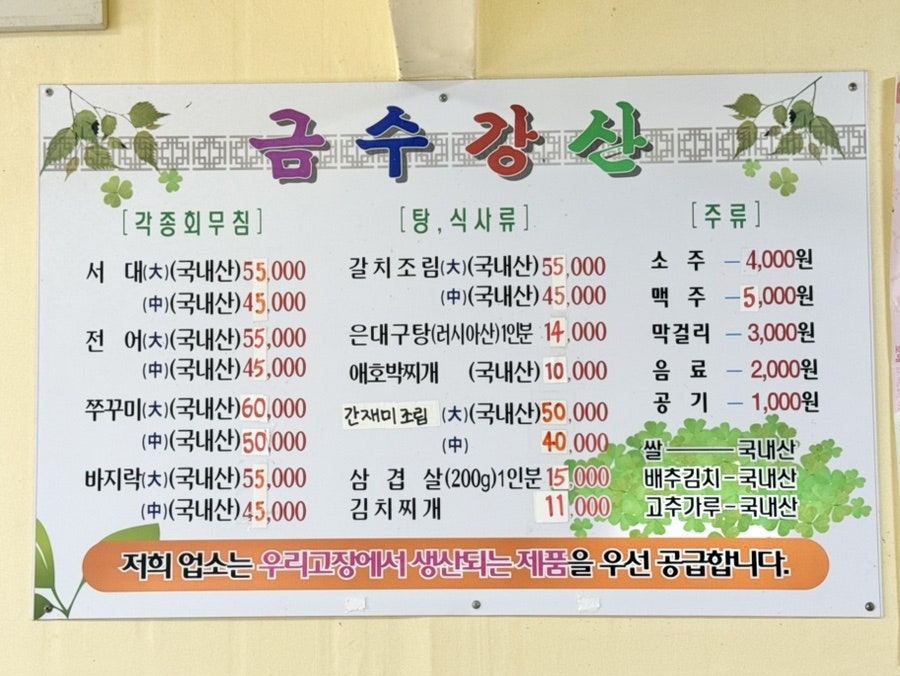 금수강산
[각종회무침]
서 대(大)(국내산)55,000
(中)(국내산)45,000
전 어(大)(국내산)55,000
(中)(국내산)45,000
쭈꾸미(大)(국내산)60,000
(中)(국내산)50,000
바지락(大)(국내산)55,000
(中)(국내산)45,000
[탕,식사류]
갈치조림(大)(국내산)55,000
(中)(국내산)45,000
은대구탕(러시아산)1인분 14,000
애호박찌개 (국내산)10,000
간재미조림 (大)(국내산)50,000
(中) 40,000
삼 겹 살(200g)1인분 15,000
김치찌개 11,000
[주류]
소 주 - 4,000원
맥 주 - 5,000원
막걸리 - 3,000원
음 료 - 2,000원
공 기 - 1,000원
쌀 ─── 국내산
배추김치-국내산
고추가루-국내산
저희 업소는 우리고장에서 생산되는 제품을 우선 공급합니다.